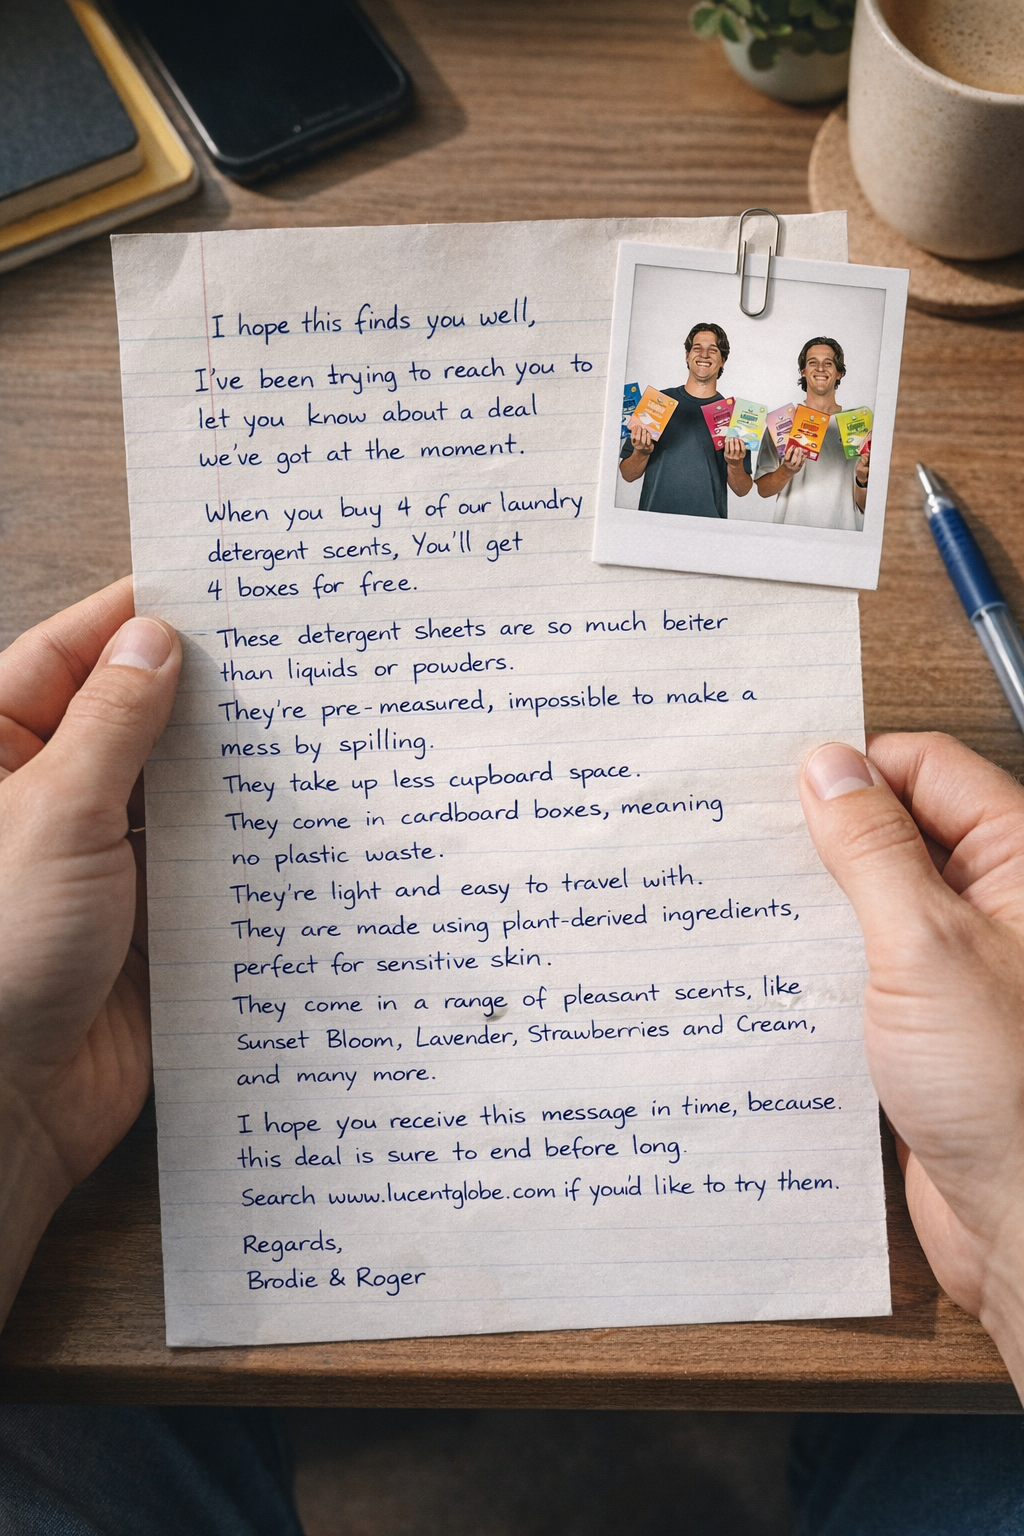 I hope this finds you well,
I've been trying to reach you to
let you know about a deal
we've got at the moment.
When you buy 4 of our laundry
detergent scents, You'll get
4 boxes for free.
These detergent sheets are so much beiter
than liquids or powders.
They're pre-measured, impossible to make a
mess by spilling.
They take up less cupboard space.
They come in cardboard boxes, meaning
no plastic waste.
They're light and easy to travel with.
They are made using plant-derived ingredients,
perfect for sensitive skin.
They come in a range of pleasant scents, like
Sunset Bloom, Lavender, Strawberries and Cream,
and many more.
I hope you receive this message in time, because.
this deal is sure to end before long.
Search www.lucentglobe.com if you'd like to try them.
Regards,
Brodie & Roger